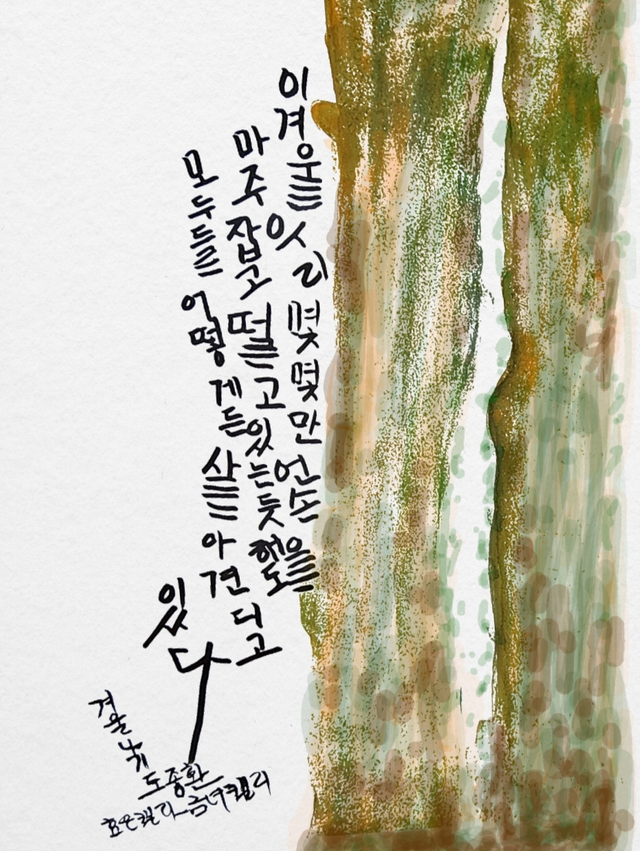 이 겨울 우리 몇몇만 언 손을
마주 잡고 떨고 있는 듯 해도
모두들 어떻게든 살아 견디고
있다
겨울나기
도종환
효은캘리_금녀캘리